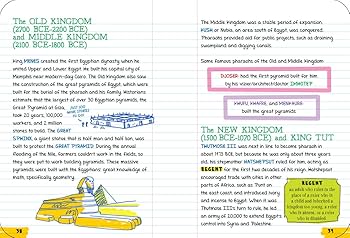 The OLD KINGDOM
(2700 BCE-2200 BCE)
and MIDDLE KINGDOM
(2100 BCE-1800 BCE)
King MENES created the first Egyptian dynasty when he
united Upper and Lower Egypt. He built his capital city of
Memphis near modern-day Cairo. The Old Kingdom also saw
the construction of the great pyramids of Egypt, which were
built for the burial of the pharaoh and his family. Historians
estimate that the largest of over 30 Egyptian pyramids, the
Great Pyramid at Giza,
took 20 years, 100,000
workers, and 2 million
stones to build. The GREAT
SPHINX, a giant statue that is half man and half lion, was
built to protect the GREAT PYRAMID. During the annual
flooding of the Nile, farmers couldn't work in the fields, so
they were put to work building pyramids. These massive
pyramids were built with the Egyptians' great knowledge of
math, specifically geometry.
38
The Middle Kingdom was a stable period of expansion.
KUSH or Nubia, an area south of Egypt, was conquered.
Pharaohs provided aid for public projects, such as draining
swampland and digging canals.
Some famous pharaohs of the Old and Middle Kingdom:
DJOSER: had the first pyramid built for him
by his vizier/architect/doctor IMHOTEP
KHUFU, KHAFRE, and MENKAURE:
built the great pyramids
The NEW KINGDOM
(1500 BCE-1070 BCE) and KING TUT
THUTMOSE III was next in line to become pharaoh
in about 1473 BCE, but because he was only about three years
old, his stepmother HATSHEPSUT ruled for him, acting as
REGENT for the first two decades of his reign. Hatshepsut
encouraged trade with cities in other
parts of Africa, such as Punt on
the east coast, and introduced ivory
and incense to Egypt. When it was
Thutmose III's turn to rule, he led
an army of 20,000 to extend Egypt's
control into Syria and Palestine.
REGENT
an adult who rules in the
place of a ruler who is
a child and inherited a
kingdom too young, a ruler
who is absent, or a ruler
who is disabled
39